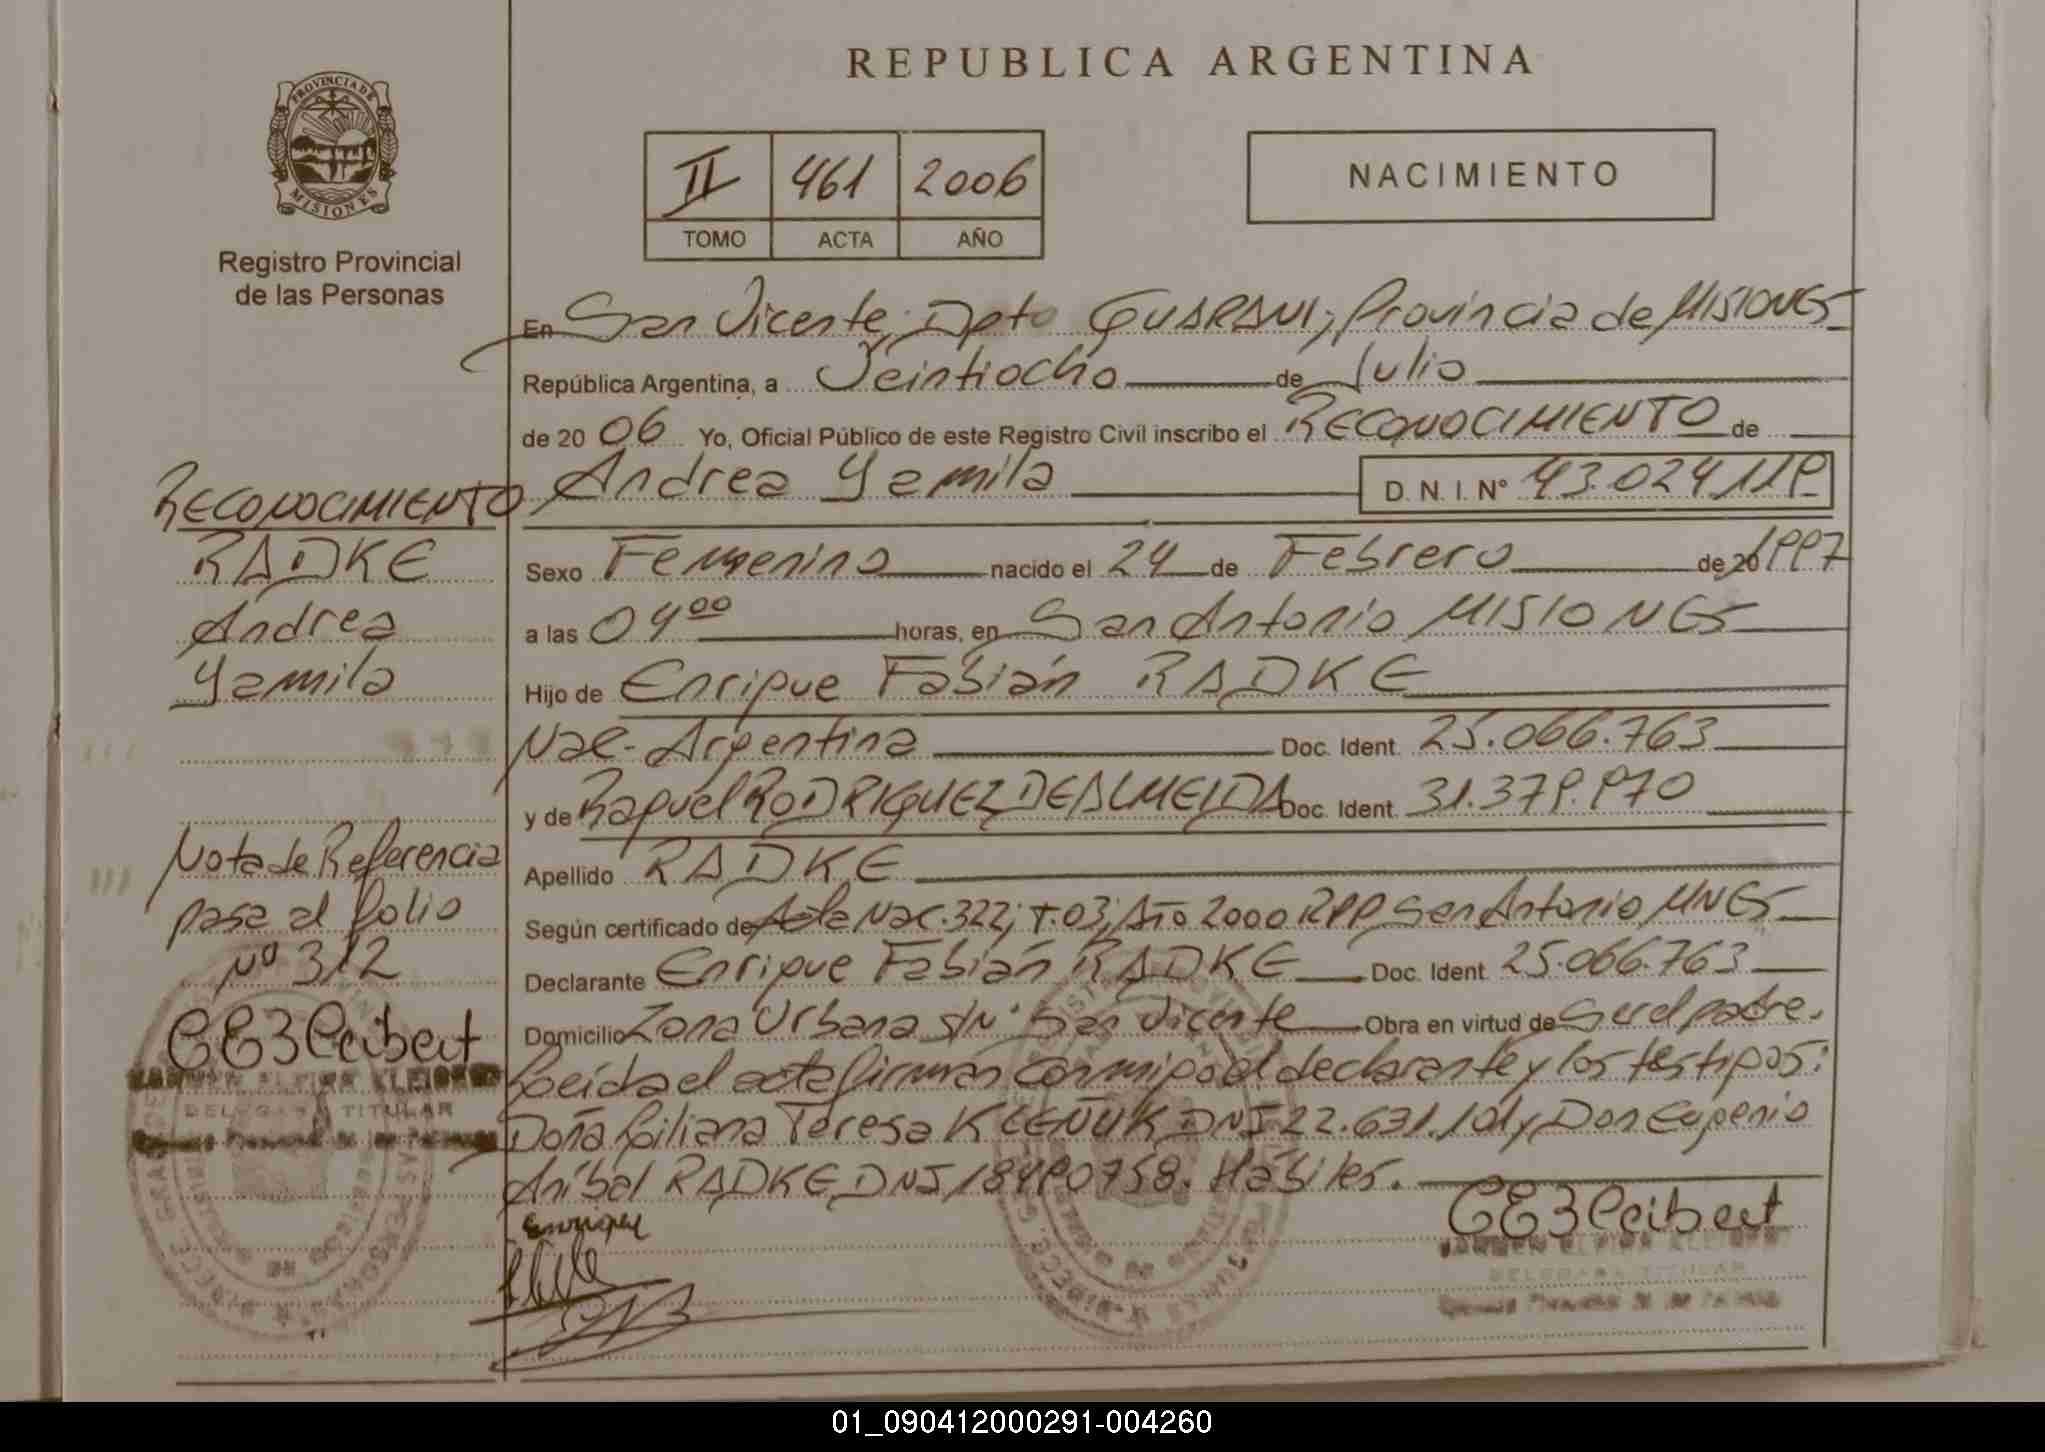 REPUBLICA ARGENTINA
PROVINCIA DE
MISIONES
Registro Provincial
de las Personas
II 461 2006
TOMO ACTA AÑO
NACIMIENTO
En San Vicente, Dpto GUARANI, Provincia de MISIONES
República Argentina, a Veintiocho de Julio
de 20 06 Yo, Oficial Público de este Registro Civil inscribo el RECONOCIMIENTO de
Andrea Yamila D. N. I. N° 43.024.119
Sexo Femenino nacido el 24 de Febrero de 20 1997
a las 04⁰⁰ horas, en San Antonio MISIONES
Hijo de Enrique Fabián RADKE
Nac. Argentina Doc. Ident. 25.066.763
y de Raquel RODRIGUEZ DE ALMEIDA Doc. Ident. 31.379.970
Apellido RADKE
Según certificado de Acta Nac. 322; T. 03; Año 2000 RPP San Antonio MNES
Declarante Enrique Fabián RADKE Doc. Ident. 25.066.763
Domicilio Zona Urbana S/N° San Vicente Obra en virtud de Ser el padre.
Leída el acta firman conmigo el declarante y los testigos:
Doña Liliana Teresa DNI 22.631.101 y Don Eugenio
Aníbal RADKE DNI 18490758. Hábiles.
RECONOCIMIENTO
RADKE
Andrea
Yamila
Nota de Referencia
pasa al folio
Nº 312
DELEGADA TITULAR
Enrique
DELEGADA TITULAR
01_090412000291-004260